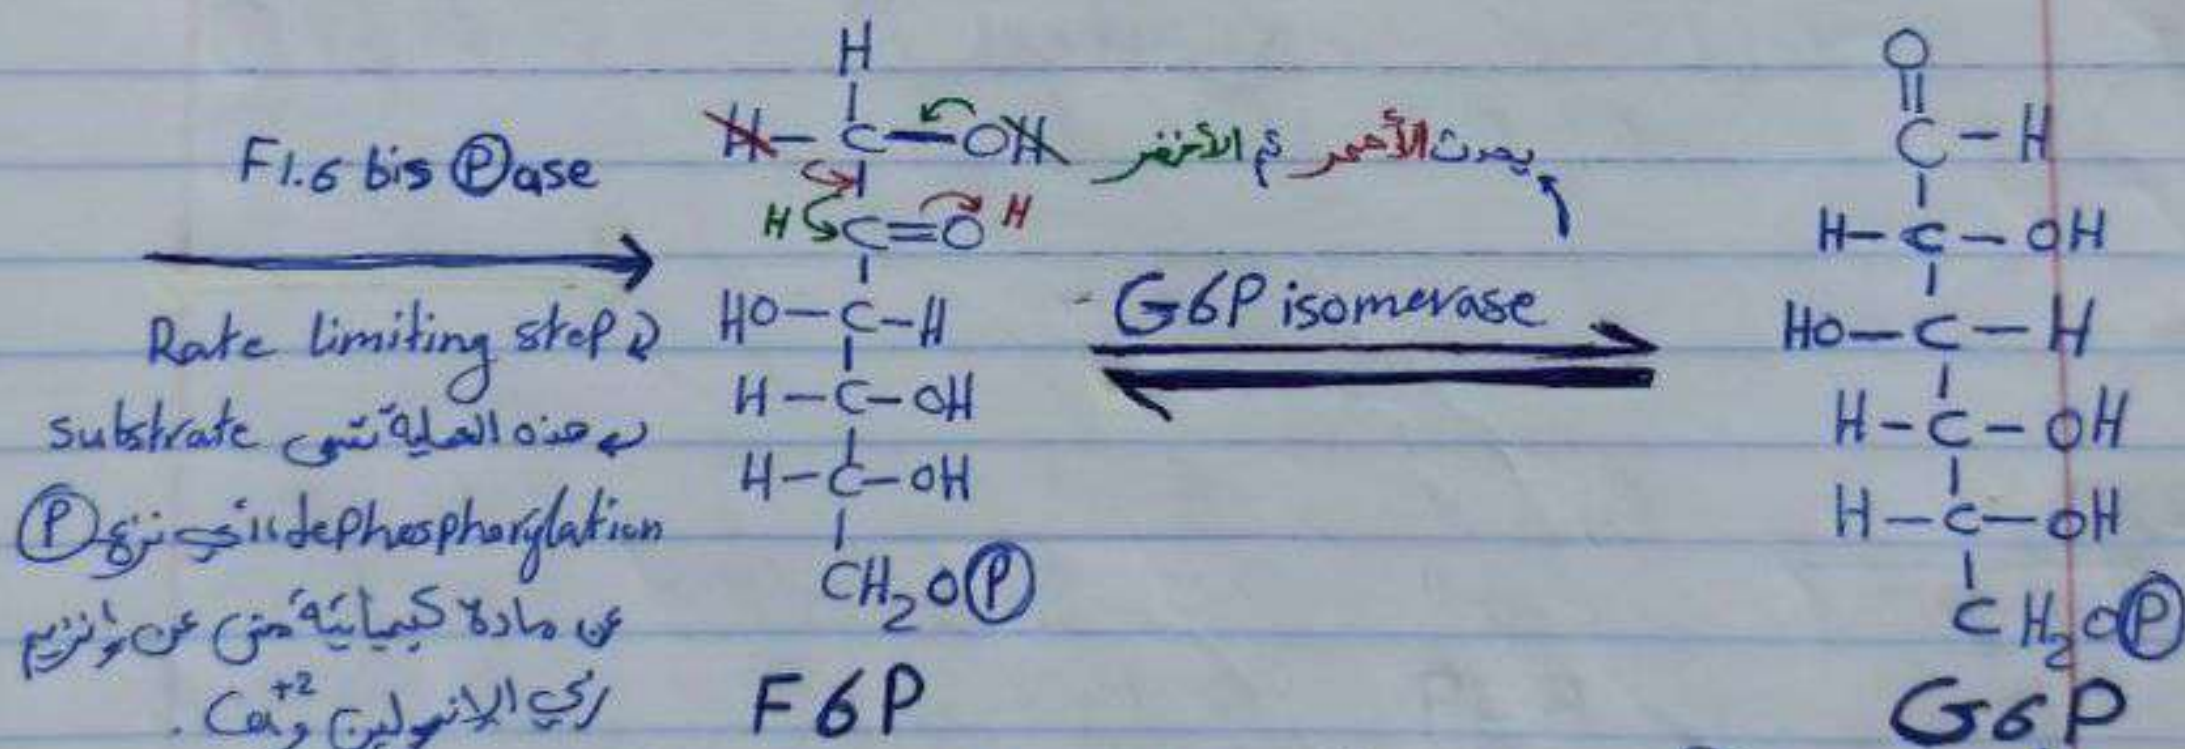 F1.6 bis Ⓟase
Rate limiting step
هذه العملية تسمى substrate
dephosphorylation أي نزع Ⓟ
عن مادة كيميائية مش عن إنزيم
زي الإنسولين و Ca⁺².
H
H–C–OH
H C=O H
HO–C–H
H–C–OH
H–C–OH
CH₂OⓅ
F6P
يحدث الأحمر ثم الأخضر
G6P isomerase
O
C–H
H–C–OH
HO–C–H
H–C–OH
H–C–OH
CH₂OⓅ
G6P